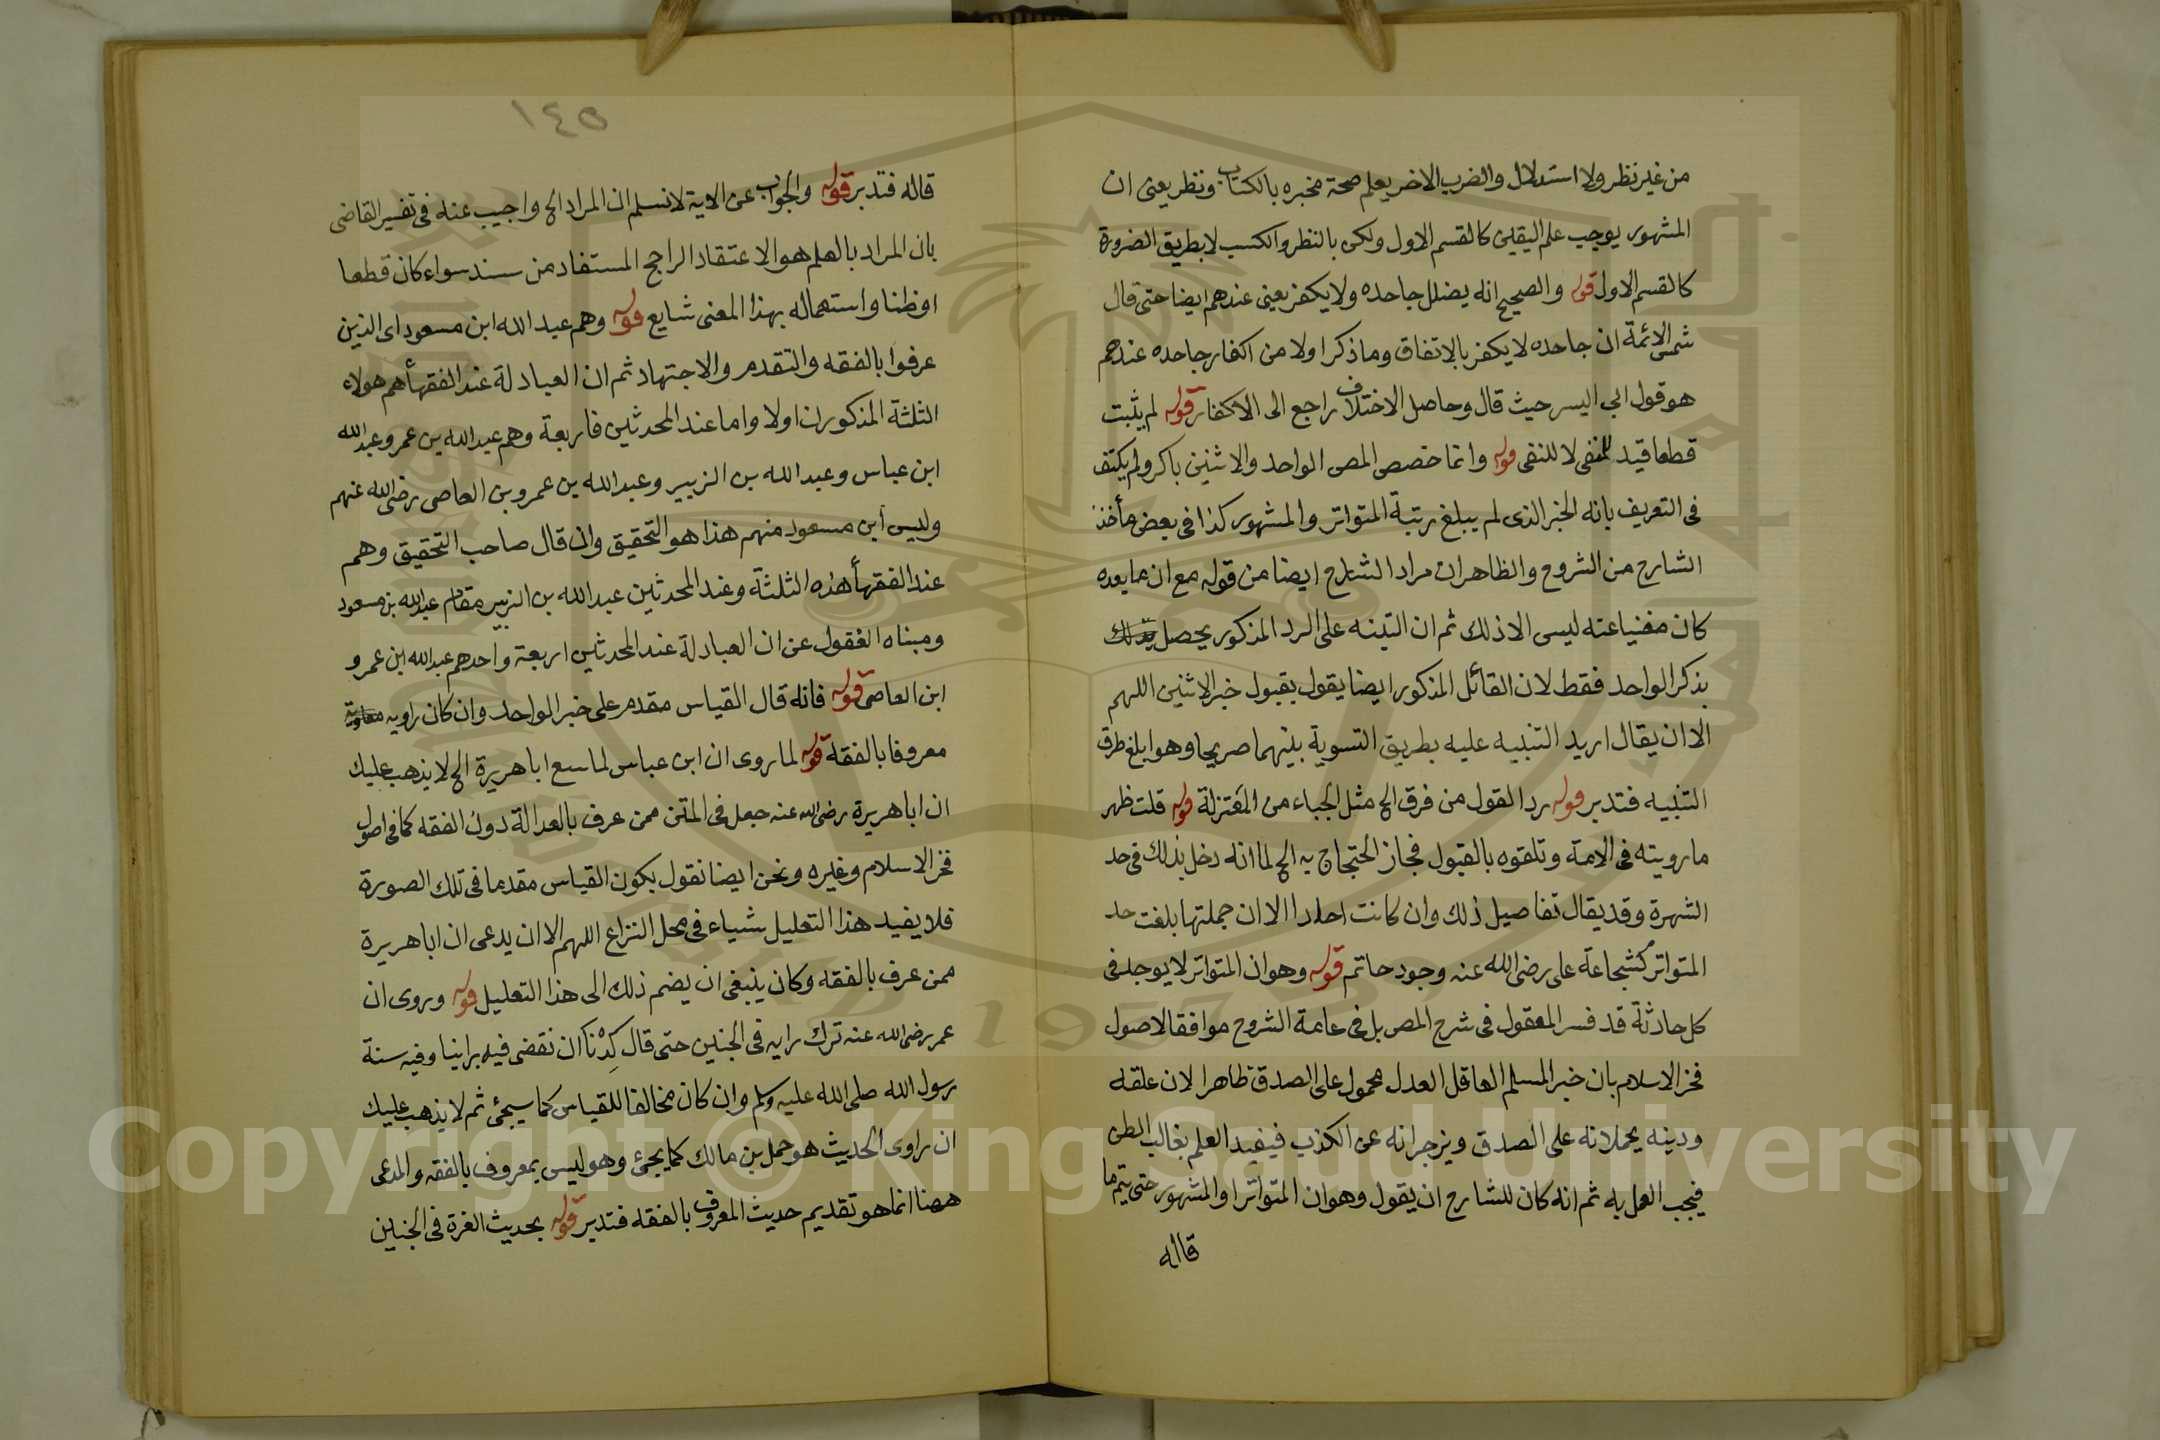 من غير نظر ولا استدلال والضرب الاخر يعلم صحة مخبره بالكتاب ونظر يعنى ان
المشهور يوجب علم اليقين كالقسم الاول ولكن بالنظر والكسب لا بطريق الضرورة
كالقسم الاول قوله والصحيح انه يضلل جاحده ولا يكفر يعنى عندهم ايضا حتى قال
شمس الائمة ان جاحده لا يكفر بالاتفاق وما ذكر اولا من اكفار جاحده عندهم
هو قول ابى اليسر حيث قال وحاصل الاختلاف راجع الى الاكفار قوله لم يثبت
قطعا قيد للمنفى لا للنفى قوله وانما خصص المص الواحد والاثنين باكر ولم يكتف
فى التعريف بانه الخبر الذى لم يبلغ رتبة المتواتر والمشهور كذا فى بعض مأخذ
الشارح من الشروح والظاهر ان مراد الشارح ايضا من قوله مع ان ما بعده
كان مغنيا عنه ليس الا ذلك ثم ان التنبه على الرد المذكور يحصل
بذكر الواحد فقط لان القائل المذكور ايضا يقول بقبول خبر الاثنين اللهم
الا ان يقال اريد التنبيه عليه بطريق التسوية بينهما صريحا وهو ابلغ طرق
التنبيه فتدبر قوله رد القول من فرق الخ مثل الجباء من المعتزلة قوله قلت ظهر
ما رويته فى الامة وتلقوه بالقبول فجاز الحتجاج به الخ لما انه دخل بذلك فى حد
الشهرة وقد يقال تفاصيل ذلك وان كانت احادا الا ان جملتها بلغت حد
المتواتر كشجاعة على رضى الله عنه وجود حاتم قوله وهو ان المتواتر لا يوجد فى
كل حادثة قد فسر المعقول فى شرح المص بل فى عامة الشروح موافقا لاصول
فخر الاسلام بان خبر المسلم العاقل العدل محمول على الصدق ظاهرا لان عقله
ودينه يحملانه على الصدق ويزجرانه عن الكذب فيفيد العلم بغالب الظن
فيجب العمل به ثم انه كان للشارح ان يقول وهو ان المتواتر او المشهور حتى يتم ما
قاله
١٤٥
قاله فتدبر قوله والجواب عن الاية لا نسلم ان المراد الخ واجيب عنه فى تفسير القاضى
بان المراد بالعلم هو الاعتقاد الراجح المستفاد من سند سواء كان قطعا
او ظنا واستعماله بهذا المعنى شايع قوله وهم عبد الله ابن مسعود اى الذين
عرفوا بالفقه والتقدم والاجتهاد ثم ان العبادلة عند الفقهأ هم هولاء
الثلثة المذكورن اولا واما عند المحدثين فاربعة وهم عبد الله بن عمر وعبد الله
ابن عباس وعبد الله بن الزبير وعبد الله بن عمرو بن العاصى رضى الله عنهم
وليس ابن مسعود منهم هذا هو التحقيق وان قال صاحب التحقيق وهم
عند الفقهأ هذه الثلثة وعند المحدثين عبد الله بن الزبير مقام عبد الله بن مسعود
ومبناه الغفول عن ان العبادلة عند المحدثين اربعة واحدهم عبد الله ابن عمرو
ابن العاصى قوله فانه قال القياس مقدم على خبر الواحد وان كان راويه
معروفا بالفقه قوله لما روى ان ابن عباس لما سمع ابا هريرة الخ لا يذهب عليك
ان ابا هريرة رضى الله عنه جعل فى المتن ممن عرف بالعدالة دون الفقه كما فى اصول
فخر الاسلام وغيره ونحن ايضا نقول بكون القياس مقدما فى تلك الصورة
فلا يفيد هذا التعليل شياء فى محل النزاع اللهم الا ان يدعى ان ابا هريرة
ممن عرف بالفقه وكان ينبغى ان يضم ذلك الى هذا التعليل قوله وروى ان
عمر رضى الله عنه ترك رايه فى الجنين حتى قال كِدْنا ان نقضى فيه براينا وفيه سنة
رسول الله صلى الله عليه وسلم وان كان مخالفا للقياس كما سيجئ ثم لا يذهب عليك
ان راوى الحديث هو حمل بن مالك كما يجئ وهو ليس بمعروف بالفقه والمدعى
ههنا انما هو تقديم حديث المعروف بالفقه فتدبر قوله بحديث الغرة فى الجنين
Copyright © King Saud University
1957